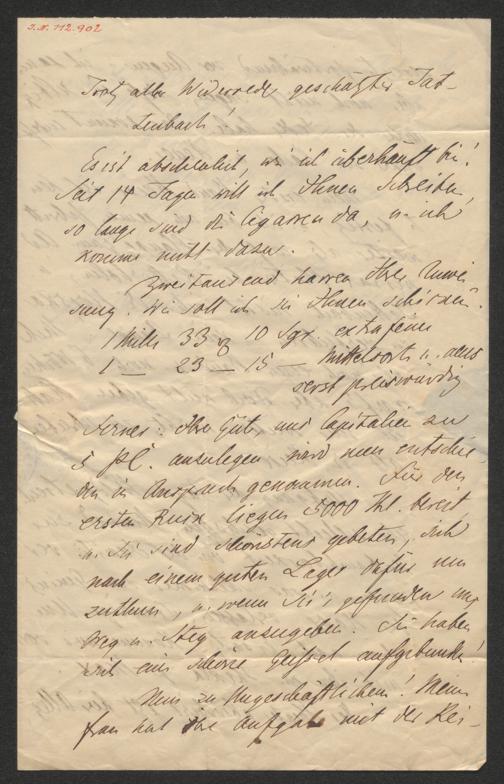 J.N. 112.902
Trotz aller Widerrede geschätzter Tat-
lenbach!
Es ist abscheulich, wie ich überhäuft bin!
Seit 14 Tagen will ich Ihnen schreiben,
so lange sind die Cigarren da, u. ich
komme nicht dazu.
Zweitausend harren Ihrer Anwei-
sung. Wie soll ich sie Ihnen schicken?
1 Mille 33 10 Sgr. extrafeine
1 — 23 — 15 — Mittelsorte u. äus
serst preiswürdig
Ferner: Ihre Güte uns Capitalien zu
5 pC. anzulegen wird nun entschie-
den in Anspruch genommen. Für den
ersten liegen 5000 Thl. bereit
u. Sie sind schönstens gebeten, sich
nach einem guten Lager dafür um
zuthun, u. wenn Sie's gefunden mir
Weg u. Steg anzugeben. Sie haben
sich eine schöne Geissel aufgebunden!
Nun zu Ungeschäftlichem! Meine
Frau hat ihre Aufgabe mit der Rei-